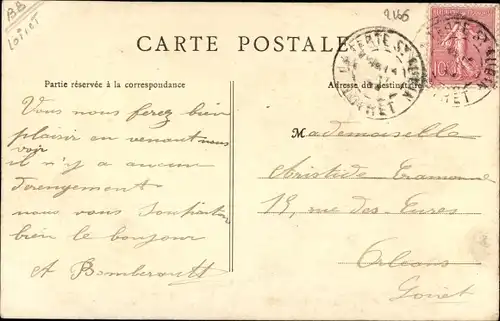 BB
Loiret
2166
CARTE POSTALE
Partie réservée à la correspondance
Adresse du destinataire
LA FERTÉ ST AUBIN
LOIRET
10
Vous nous ferez bien
plaisir en venant nous
voir
il n'y a aucun
derengement
nous vous
bien le bonjour
A
Mademoiselle
Aristide
19, rue des
Orléans
Loiret